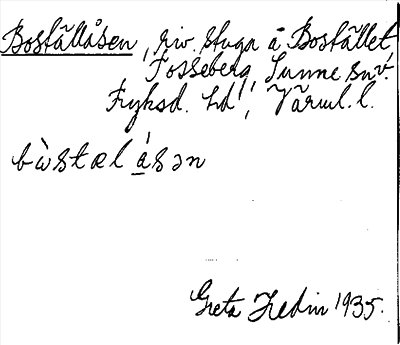 Boställåsen, riv. stuga å Bostället,
Fosseberg, Sunne snv.
Fryksd. hd, Värml. l.
bẁstæl ásən
Greta Hedin 1935.